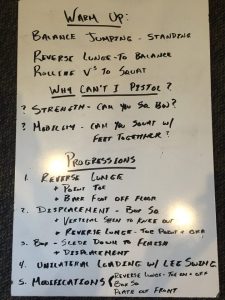 WARM UP:
BALANCE JUMPING - STANDING
REVERSE LUNGE - TO BALANCE
ROLLING V'S TO SQUAT
WHY CAN'T I PISTOL?
? STRENGTH - CAN YOU SQ BOX?
? MOBILITY - CAN YOU SQ W/
FEET TOGETHER?
PROGRESSIONS
1. REVERSE LUNGE
+ POINT TOE
+ BACK FOOT OFF FLOOR
2. DISPLACEMENT - BOX SQ
- VERTICAL SHIN TO KNEE OUT
- REVERSE LUNGE - TOE POINT + OFF
3. BOX - SLIDE DOWN TO FINISH
+ DISPLACEMENT
4. UNILATERAL LOADING W/ LEG SWING
5. MODIFICATIONS
REVERSE LUNGE - TOE ON + OFF
BOX SQ
PLATE OUT FRONT